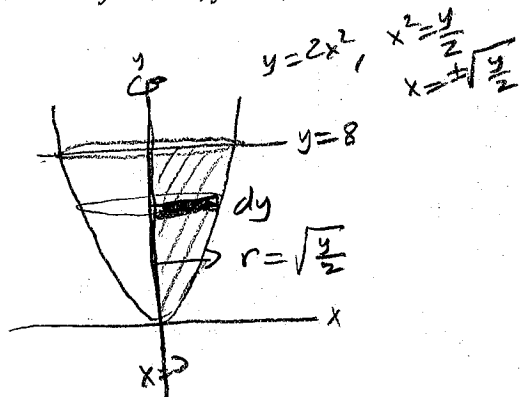 y = 2x², x² = y/2
x = ±√(y/2)
y
y = 8
dy
r = √(y/2)
x